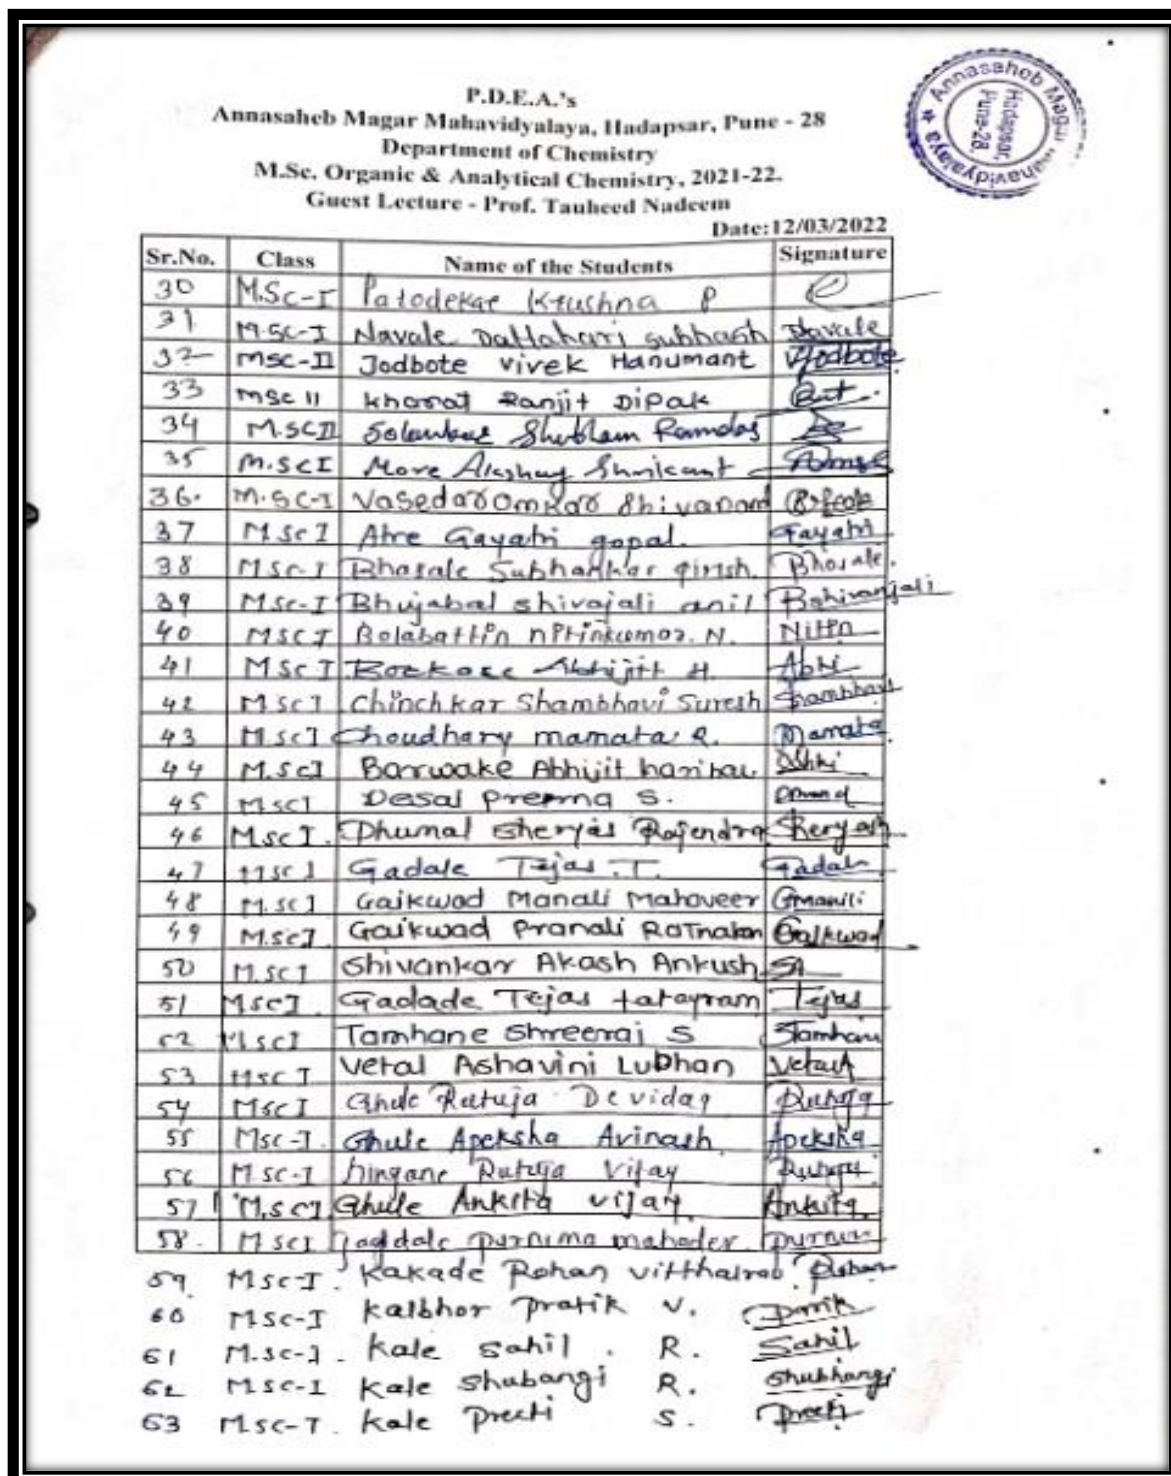 P.D.E.A.'s
Annasaheb Magar Mahavidyalaya, Hadapsar, Pune - 28
Department of Chemistry
M.Sc. Organic & Analytical Chemistry, 2021-22.
Guest Lecture - Prof. Tauheed Nadeem
Date:12/03/2022
Annasaheb Magar Mahavidyalaya
Hadapsar,
Pune-28.
Sr.No. Class Name of the Students Signature
30 M.Sc-I Patodekar Krushna P
31 M.SC-I Navale Dattahari subhash Navale
32 MSC-II Jodbote vivek Hanumant VJodbote
33 MSC II kharat Ranjit Dipak
34 M.SC II Shubham Ramdas
35 M.SC I More Akshay Shrikant
36. M.SC-I Vasedar Omkar Shivanand
37 M.Sc I Ahre Gayatri gopal. Gayatri
38 M Sc-I Bhosale Subhankar girish. Bhosale.
39 MSc-I Bhujabal shivajali anil Bshivanjali
40 MSC I Bolabattin nitinkumar. N. Nitin
41 MSc I Borkare Abhijit H. Abhi
42 M Sc I Chinchkar Shambhavi Suresh Shambhavi
43 M.Sc I Choudhary mamata R. Mamata
44 M.Sc I Barwake Abhijit haribau Abhi
45 M.SC I Desai Prerna S.
46 M.Sc I. Dhumal Sheryas Rajendra Sheryash
47 MSc I Gadale Tejas .T. Gadale
48 M.Sc I Gaikwad Manali Mahaveer Gmanali
49 M.Sc I Gaikwad Pranali Ratnakar Gaikwad
50 M.SC I Shivankar Akash Ankush SA
51 M.SC I Gadade Tejas tatayram Tejas
52 M.Sc I Tamhane Shreeraj S Tamhane
53 MSc I Vetal Ashavini Lubhan VetalA
54 MSc I Ghule Rutuja Devidas Rutuja
55 Msc-I. Ghule Apeksha Avinash Apeksha
56 M.Sc-I hingane Rutuja Vijay Rutuja
57 M.SC I Ghule Ankita vijay Ankita.
58. M SC I Jagdale purnima mahadev
59 MSc-I. Kakade Rohan vitthalrao Rohan
60 MSc-I Kalbhor pratik v. Pratik
61 M.Sc-I. Kale Sahil . R. Sahil
62 MSc-I Kale Shubangi R. Shubhangi
63 M.Sc-I. Kale Preeti S. Preeti